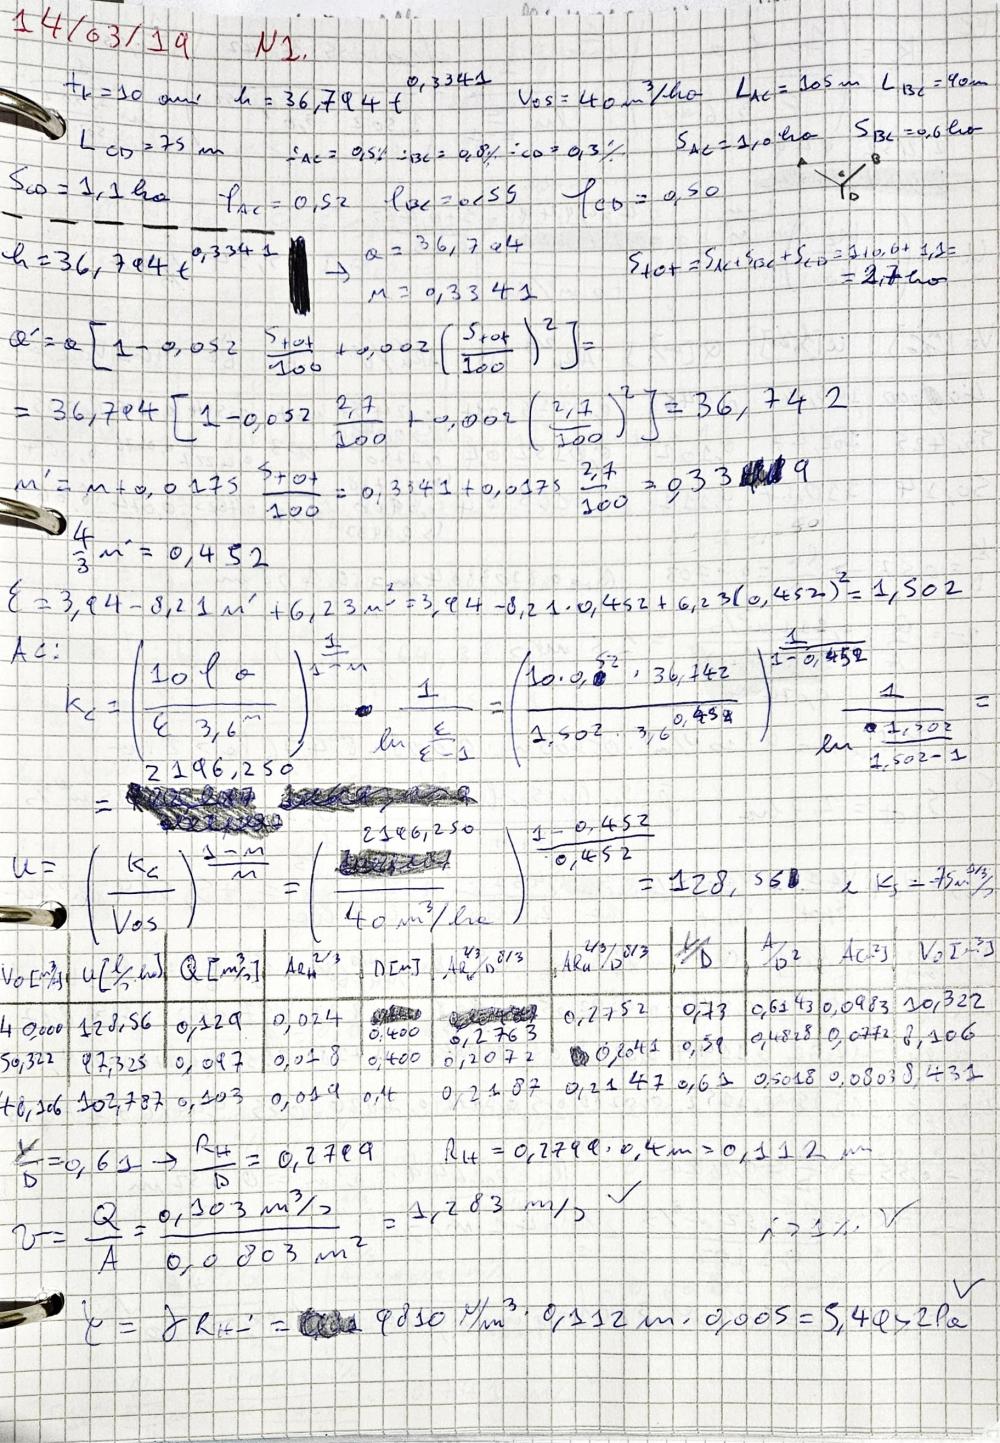 14/03/19 N1.
tr=10 anni h=36,794 t^0,3341 Vos=40 m³/ha L_AC=105 m L_BC=90m
L_CD=75 m i_AC=0,5% i_BC=0,8% i_CD=0,3% S_AC=1,0ha S_BC=0,6ha
S_CD=1,1ha φ_AC=0,52 φ_BC=0,55 φ_CD=0,50
A B C D
h=36,794 t^0,3341 → a=36,794
n=0,3341
S_tot=S_AC+S_BC+S_CD=1+0,6+1,1=
=2,7ha
a'=a[1-0,052 S_tot/100 +0,002(S_tot/100)²]=
=36,794[1-0,052 2,7/100 +0,002(2,7/100)²]=36,742
n'=n+0,0175 S_tot/100 =0,3341+0,0175 2,7/100 =0,339
4/3 n'=0,452
ε=3,94-8,21n'+6,23n'²=3,94-8,21·0,452+6,23(0,452)²=1,502
AC:
Kc=(10φa / ε 3,6^n)^(1/(1-n)) · 1/(ln ε/(ε-1)) =(10·0,52·36,742 / 1,502·3,6^0,452)^(1/(1-0,452)) 1/(ln 1,502/(1,502-1)) =
= 2196,250
u=(Kc/Vos)^((1-n)/n) =(2196,250 / 40 m³/ha)^((1-0,452)/0,452) =128,561 e Ks=75m^1/3/s
Vo[m³/ha] u[l/s ha] Q[m³/s] AR_H^2/3 D[m] AR_H^2/3/D^8/3 AR_H^2/3/D^8/3 Y/D A/D² A[m²] Vo[m³]
40,000 128,56 0,129 0,024 0,400 0,2763 0,2752 0,73 0,6143 0,0983 10,322
50,322 97,325 0,097 0,018 0,400 0,2072 0,2041 0,59 0,4828 0,0772 8,106
48,106 102,787 0,103 0,019 0,4 0,2187 0,2147 0,61 0,5018 0,0803 8,431
Y/D=0,61 → R_H/D =0,2799 R_H=0,2799·0,4m=0,112 m
v= Q/A = 0,103 m³/s / 0,0803 m² =1,283 m/s ✓ i>1‰ ✓
τ=γ R_H i = 9810 N/m³ · 0,112 m · 0,005=5,49>2Pa ✓